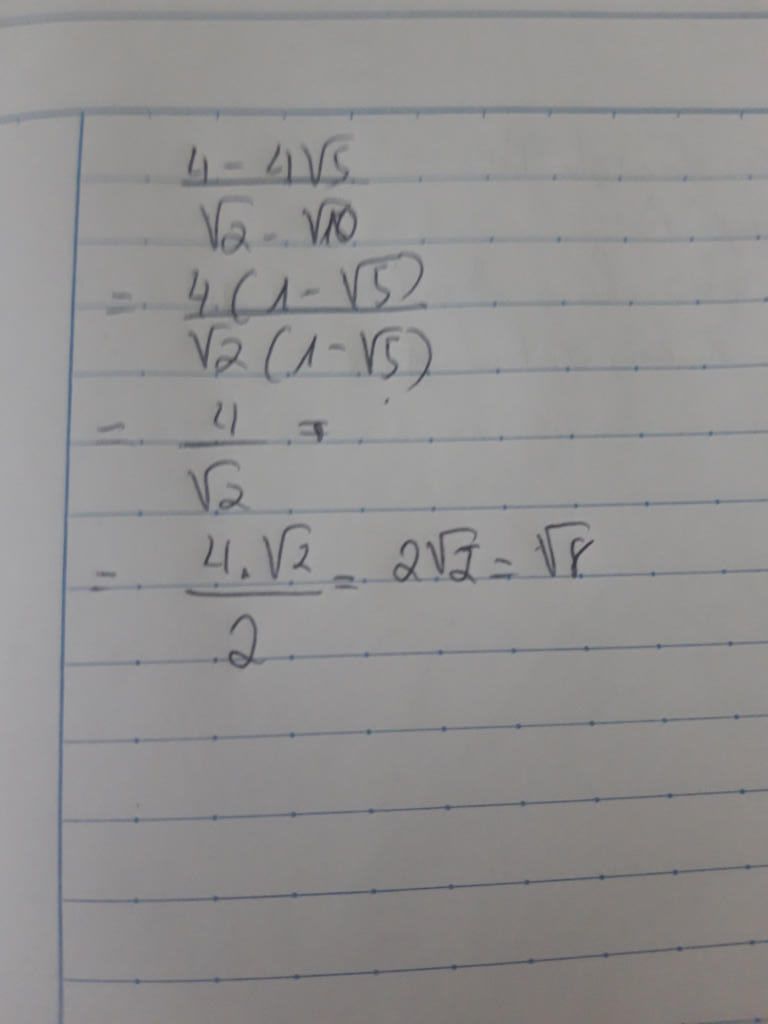 4 - 4√5
√2 - √10
= 4(1 - √5)
√2(1 - √5)
= 4 =
√2
= 4.√2 = 2√2 = √8
2